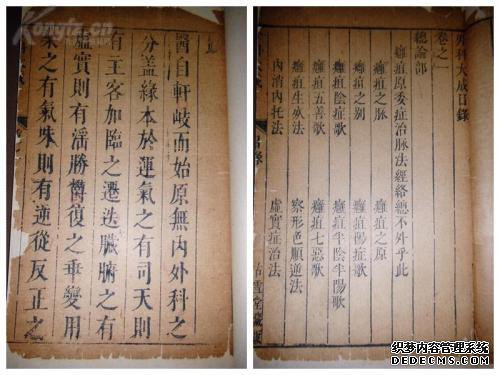 醫自軒岐而始原無內外科之
分蓋緣本於運氣之有司天則
有主客加臨之遷迭臟腑之有
虛實則有滛勝欝復之乖變用
味之有氣味則有逆從反正之
外科大成目錄
卷之一
總論部
癰疽原委症治脉法經絡總不外乎此
癰疽之脉 癰疽之原
癰疽之別 癰疽陽症歌
癰疽陰症歌 癰疽半陰半陽歌
癰疽五善歌 癰疽七惡歌
癰疽生死法 察形色順逆法
內消內托法 虛實症治法
织梦内容管理系统
DEDECMS.COM